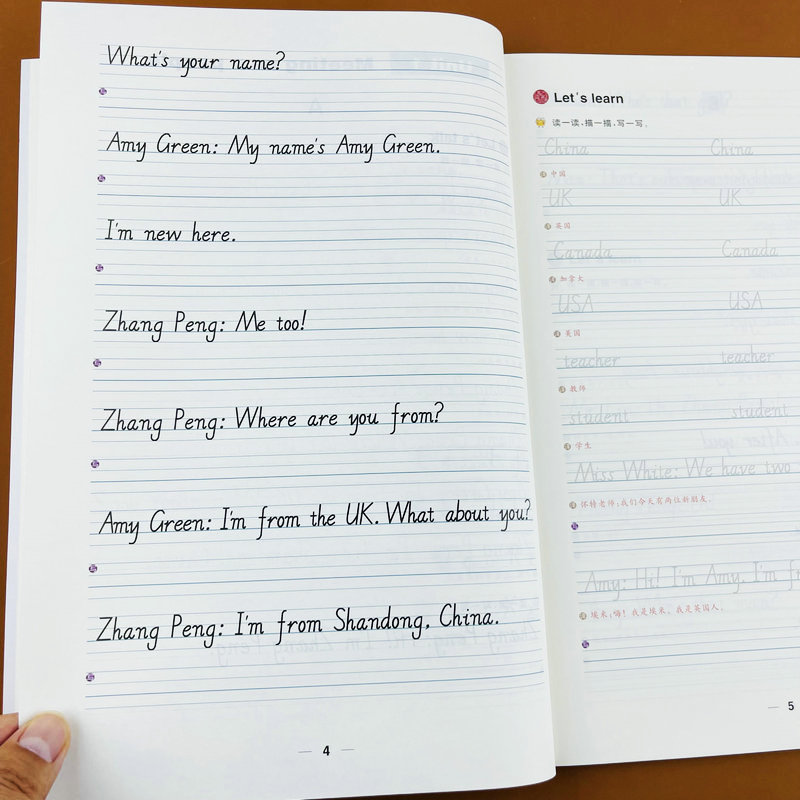 What's your name?
Amy Green: My name's Amy Green.
I'm new here.
Zhang Peng: Me too!
Zhang Peng: Where are you from?
Amy Green: I'm from the UK. What about you?
Zhang Peng: I'm from Shandong, China.
4
Let's learn
读一读、描一描、写一写。
China China
中国
UK UK
英国
Canada Canada
加拿大
USA USA
美国
teacher teacher
教师
student student
学生
Miss White: We have two
怀特老师:我们今天有两位新朋友。
Amy: Hi! I'm Amy. I'm fr
埃米:嗨!我是埃米。我是英国人。
5